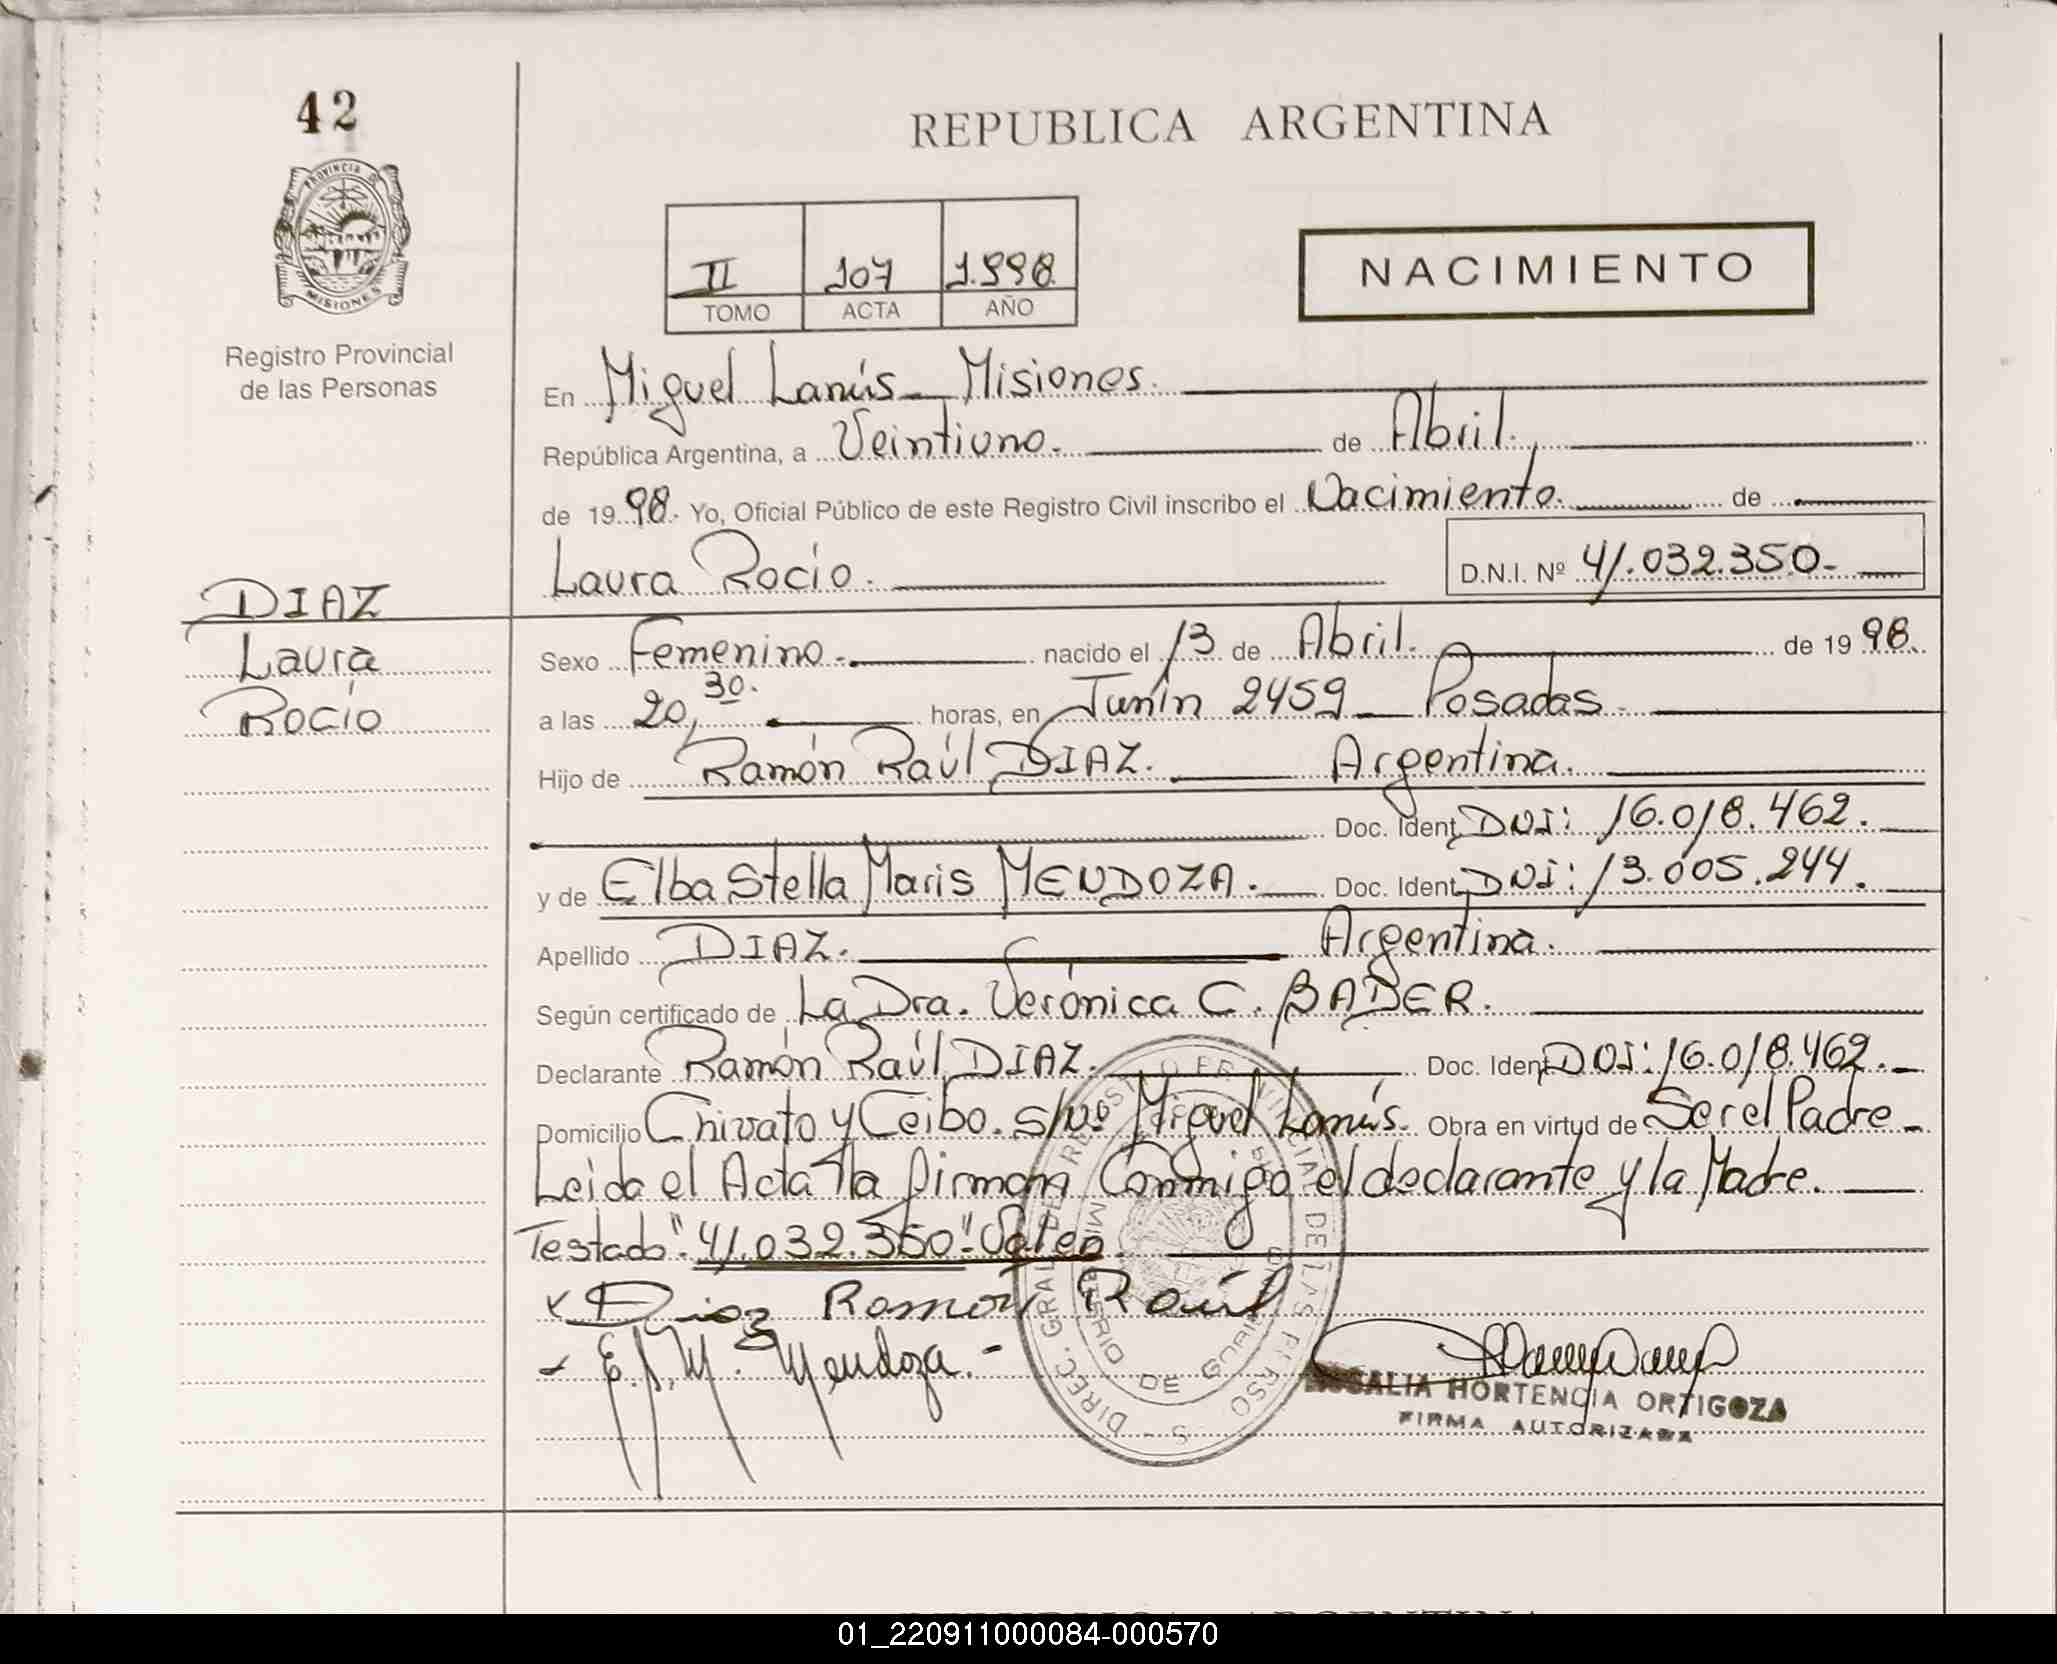 42
REPUBLICA ARGENTINA
PROVINCIA DE MISIONES
II 107 1.998.
TOMO ACTA AÑO
NACIMIENTO
Registro Provincial
de las Personas
En Miguel Lanús Misiones.
República Argentina, a Veintiuno. de Abril.
de 19 98. Yo, Oficial Público de este Registro Civil inscribo el Nacimiento. de
Laura Rocío. D.N.I. Nº 41.032.350.
DIAZ
Laura
Rocío
Sexo Femenino. nacido el 13 de Abril. de 19 98.
a las 20,30. horas, en Junín 2459 Posadas
Hijo de Ramón Raúl DIAZ. Argentina.
Doc. Ident. DNI: 16.018.462.
y de Elba Stella Maris MENDOZA. Doc. Ident. DNI: 13.005.244.
Apellido DIAZ. Argentina.
Según certificado de La Dra. Verónica C. BADER.
Declarante Ramón Raúl DIAZ. Doc. Ident. DNI: 16.018.462.
Domicilio Chivato y Ceibo. S/Nº Miguel Lanús. Obra en virtud de Ser el Padre
Leida el Acta la firman Conmigo el declarante y la Madre.
Testado "41.032.350" Vale
x Diaz Ramon Raúl
- E.S.M. Mendoza.-
ROSALIA HORTENCIA ORTIGOZA
FIRMA AUTORIZADA
DIREC. GRAL. DE REGISTRO PROVINCIAL DE LAS PERSONAS
MINISTERIO DE GOBIERNO
REPUBLICA ARGENTINA
01_220911000084-000570